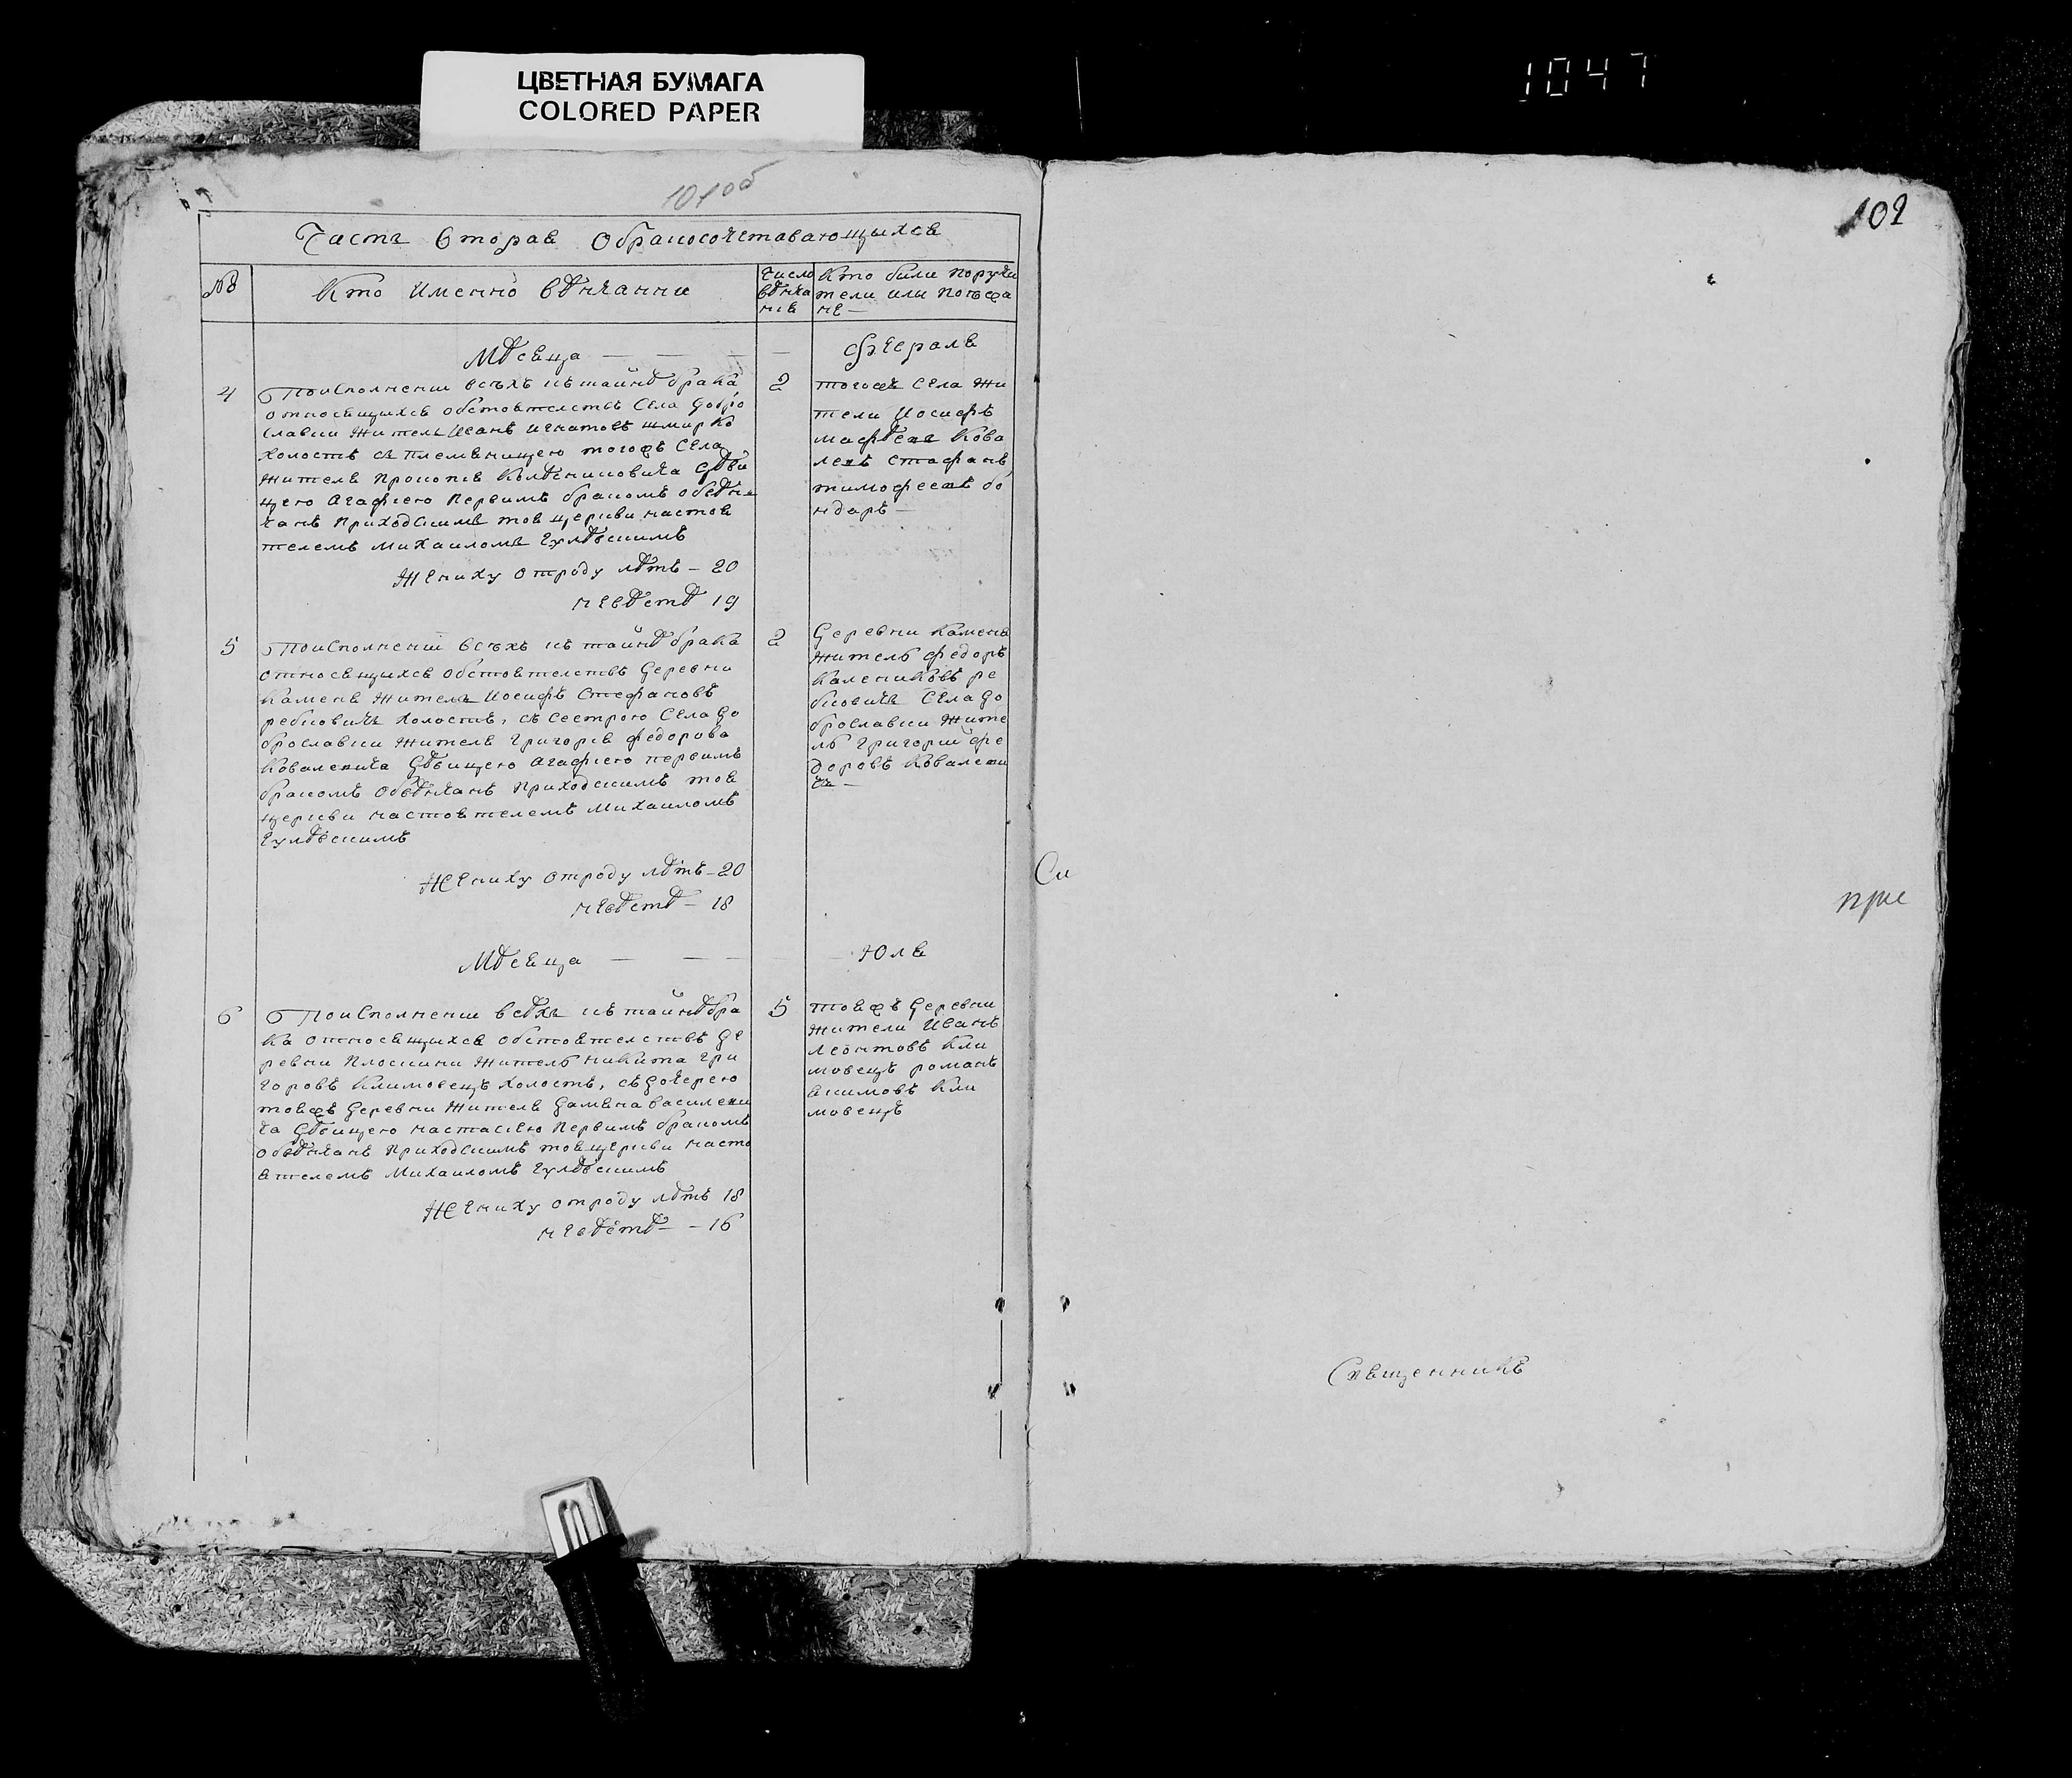 ЦВЕТНАЯ БУМАГА
COLORED PAPER
1047
101об
Часть вторая обракосочетавающыхся
№
Кто именно вѣнчанни
Число вѣнчания
Кто были поручители или поѣзжане —
Мѣсяца — — — — Февраля
4
По исполнении всѣхъ къ тайнѣ брака
относящыхся обстоятелствъ села Добро
славки житель Иванъ Игнатовъ Шмирко
холостъ съ племянницею тогожъ села
жителя Прокопия Колѣсниковича дѣви
цею Агафиею первимъ бракомъ обвѣн
чанъ приходскимъ тоя церкви настоя
телемъ Михаиломъ
Жениху отроду лѣтъ — 20
невѣстѣ 19
2
тогожъ села жи
тели Иосифъ
Кова
Стефанъ
Тимофеевъ Бо
ндаръ —
5
По исполнении всѣхъ къ тайнѣ брака
относящыхся обстоятелствъ деревни
Каменя житель Иосифъ Стефановъ
Рабковичъ холостъ, съ сестрою села До
брославки жителя Григория Федорова
Ковалевича дѣвицею Агафиею первимъ
бракомъ обвѣнчанъ приходскимъ тоя
церкви настоятелемъ Михаиломъ
Жениху отроду лѣтъ — 20
невѣстѣ — 18
2
Деревни Каменя
житель Федоръ
Ря
бковичъ села До
брославки жите
ль Григорий Фе
доровъ Ковалеви
чъ —
Мѣсяца — — — — Юля
6
По исполнении всѣхъ къ тайнѣ бра
ка относящыхся обстоятелствъ де
ревни Плоскини житель Никита Гри
горовъ Климовецъ холостъ, съ дочерею
тояжъ деревни жителя Дамяна Василеви
ча дѣвицею Настасиею первимъ бракомъ
обвѣнчанъ приходскимъ тоя церкви насто
ятелемъ Михаиломъ
Жениху отроду лѣтъ 18
невѣстѣ — — 16
5
тояжъ деревни
жители Иванъ
Леонтовъ Кли
мовецъ Романъ
Якимовъ Кли
мовецъ
102
Си
при
Священникъ